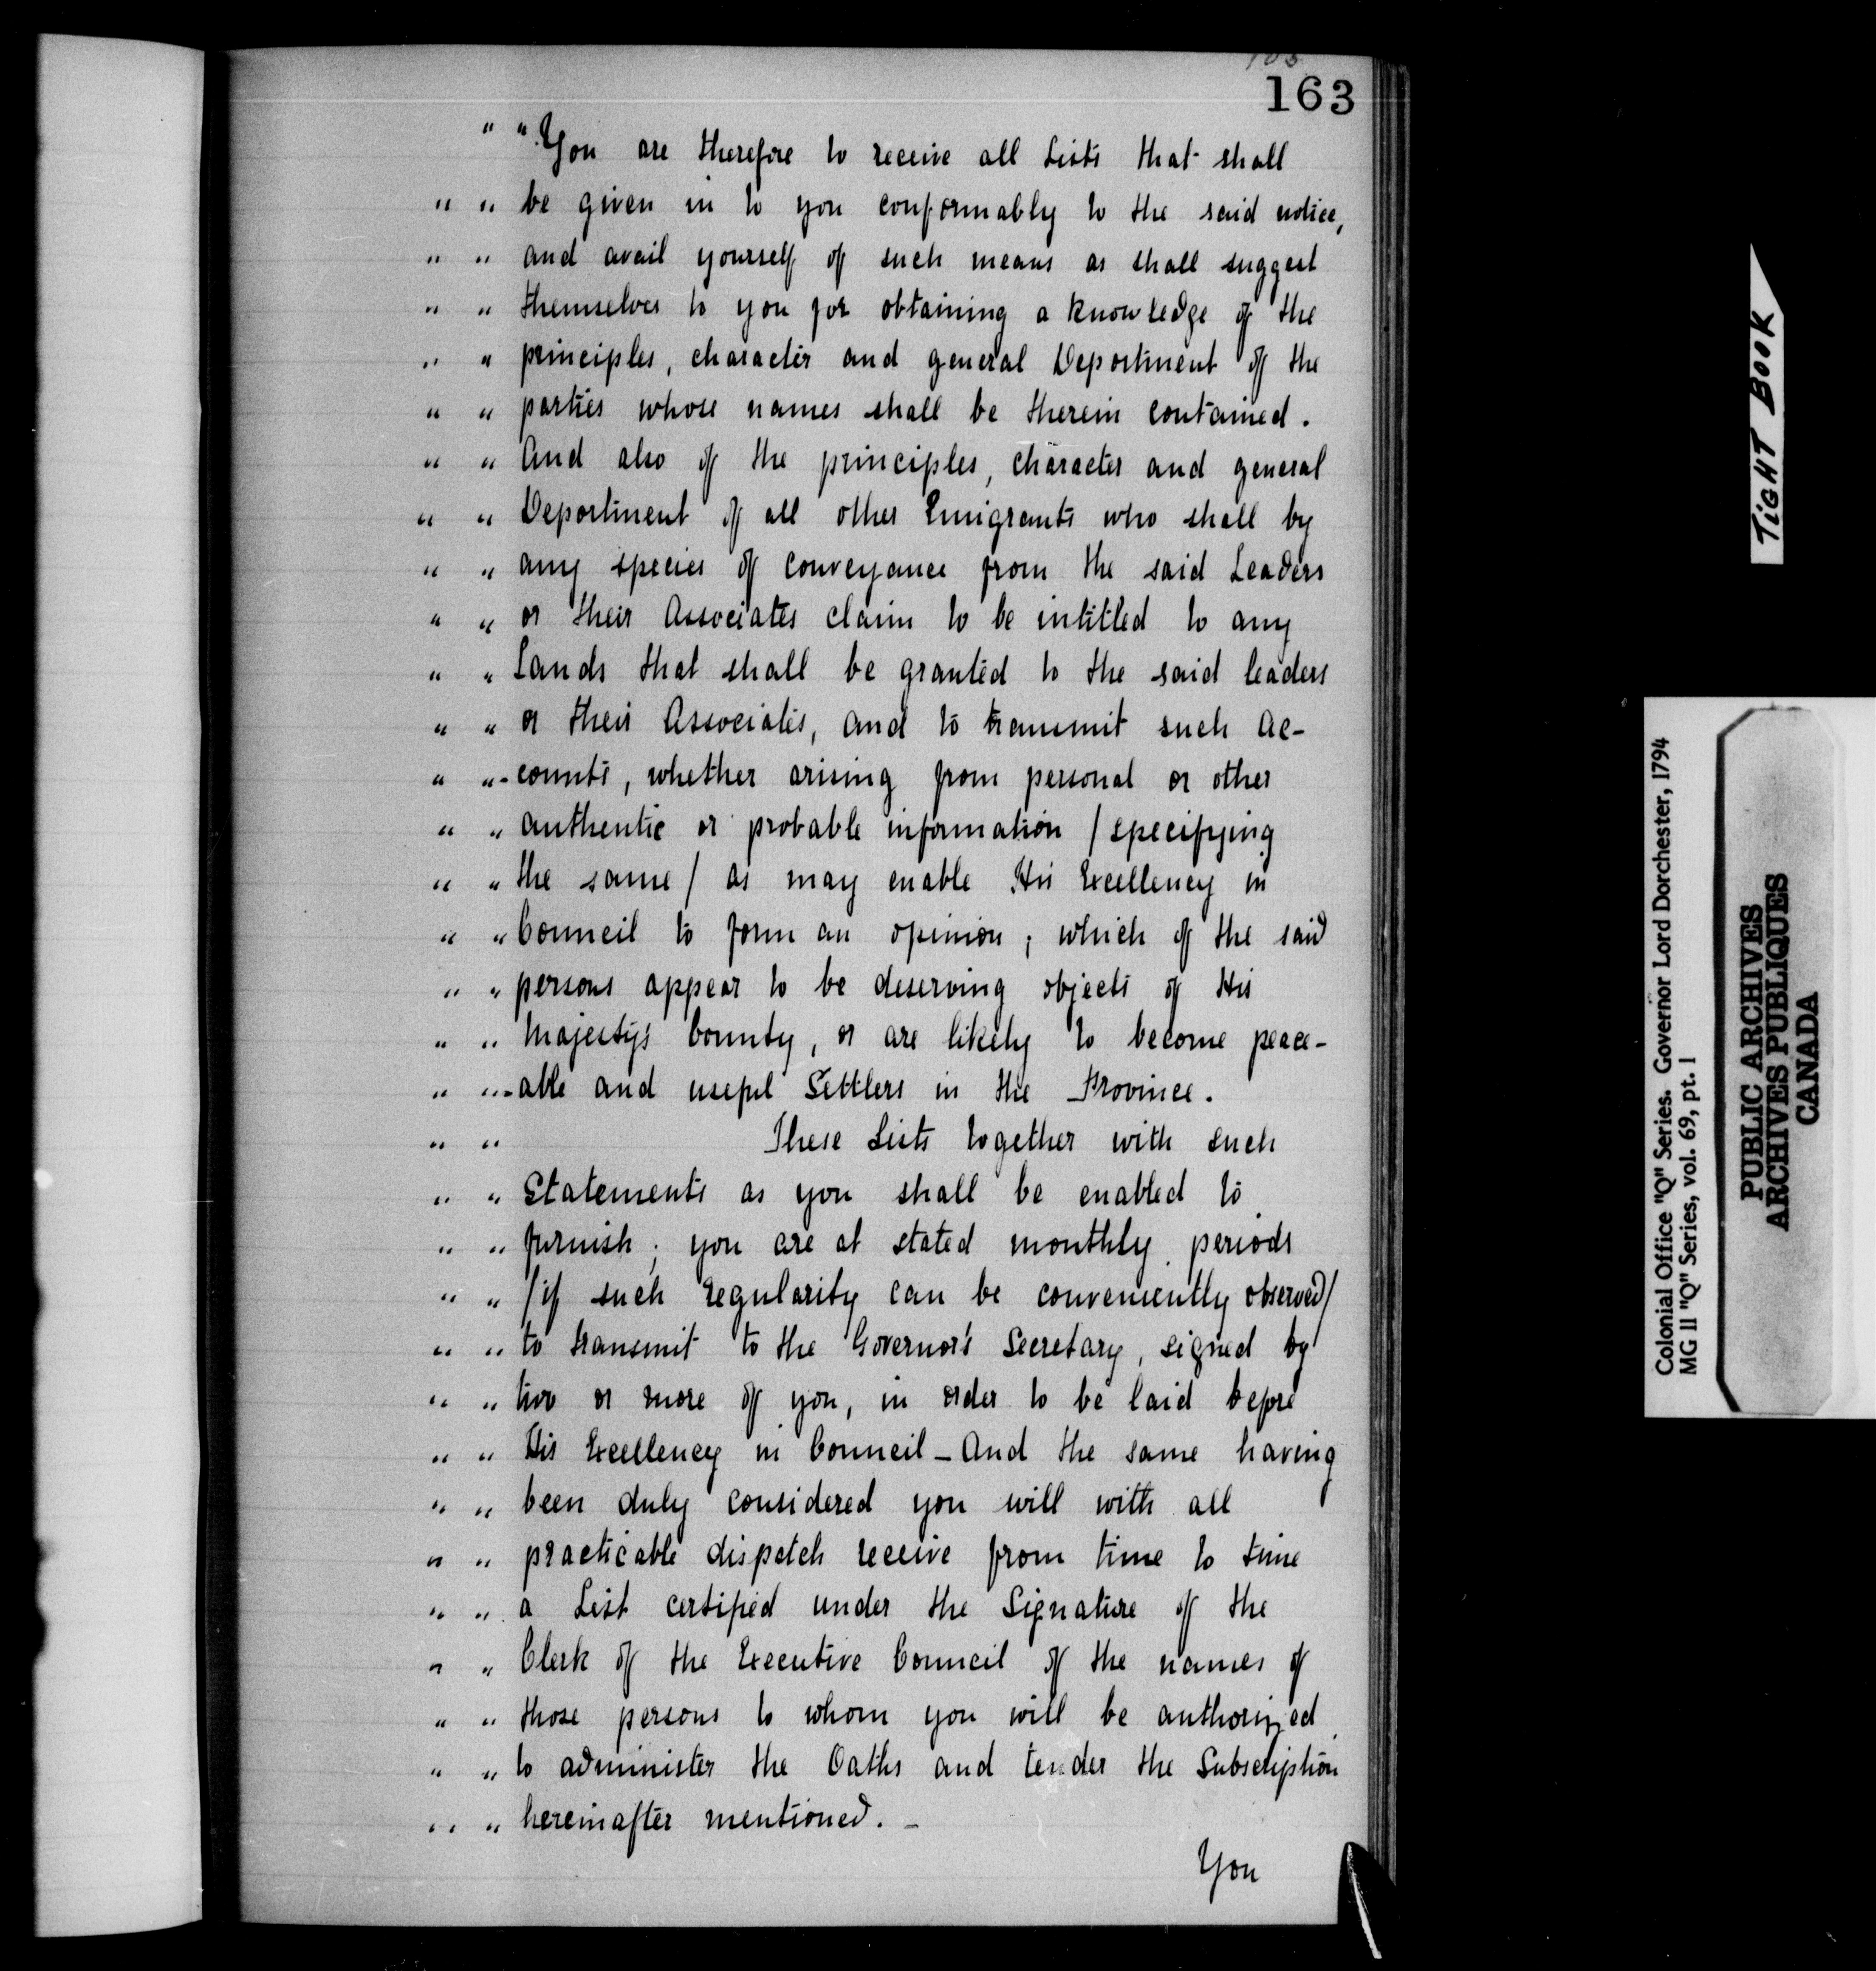 163
" " You are therefore to receive all Lists that shall
" " be given in to you conformably to the said notice,
" " and avail yourself of such means as shall suggest
" " themselves to you for obtaining a knowledge of the
" " principles, character and general Deportment of the
" " parties whose names shall be therein contained.
" " And also of the principles, character and general
" " Deportment of all other Emigrants who shall by
" " any species of conveyance from the said Leaders
" " or their Associates claim to be intitled to any
" " Lands that shall be granted to the said leaders
" " or their Associates, and to transmit such ac-
" " -counts, whether arising from personal or other
" " authentic or probable information / specifying
" " the same / as may enable His Excellency in
" " Council to form an opinion; which of the said
" " persons appear to be deserving objects of His
" " Majesty's bounty, or are likely to become peace-
" " -able and useful Settlers in the Province.
" " These Lists together with such
" " Statements as you shall be enabled to
" " furnish; you are at stated monthly periods
" " /if such regularity can be conveniently observed/
" " to transmit to the Governor's Secretary, signed by
" " two or more of you, in order to be laid before
" " His Excellency in Council - And the same having
" " been duly considered you will with all
" " practicable dispatch receive from time to time
" " a List certified under the Signature of the
" " Clerk of the Executive Council of the names of
" " those persons to whom you will be authorized
" " to administer the Oaths and tender the Subscription
" " hereinafter mentioned. -
You
TIGHT BOOK
Colonial Office "Q" Series. Governor Lord Dorchester, 1794
MG 11 "Q" Series, vol. 69, pt. 1
PUBLIC ARCHIVES
ARCHIVES PUBLIQUES
CANADA